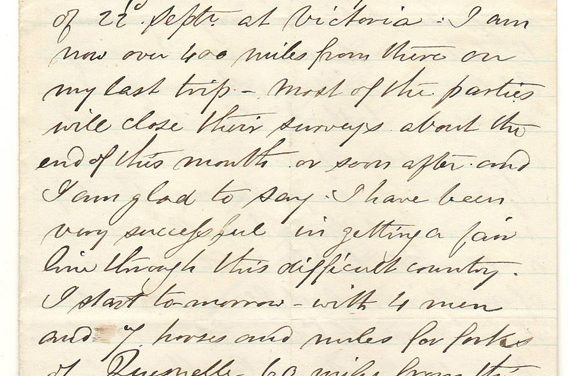 of 22d Septr. at Victoria : I am
now over 400 miles from there on
my last trip - most of the parties
will close their surveys about the
end of this month or soon after and
I am glad to say I have been
very successful in getting a fair
line through this difficult country.
I start to-morrow - with 4 men
and 7 horses and mules for forks
of Quesnelle - 60 miles from the